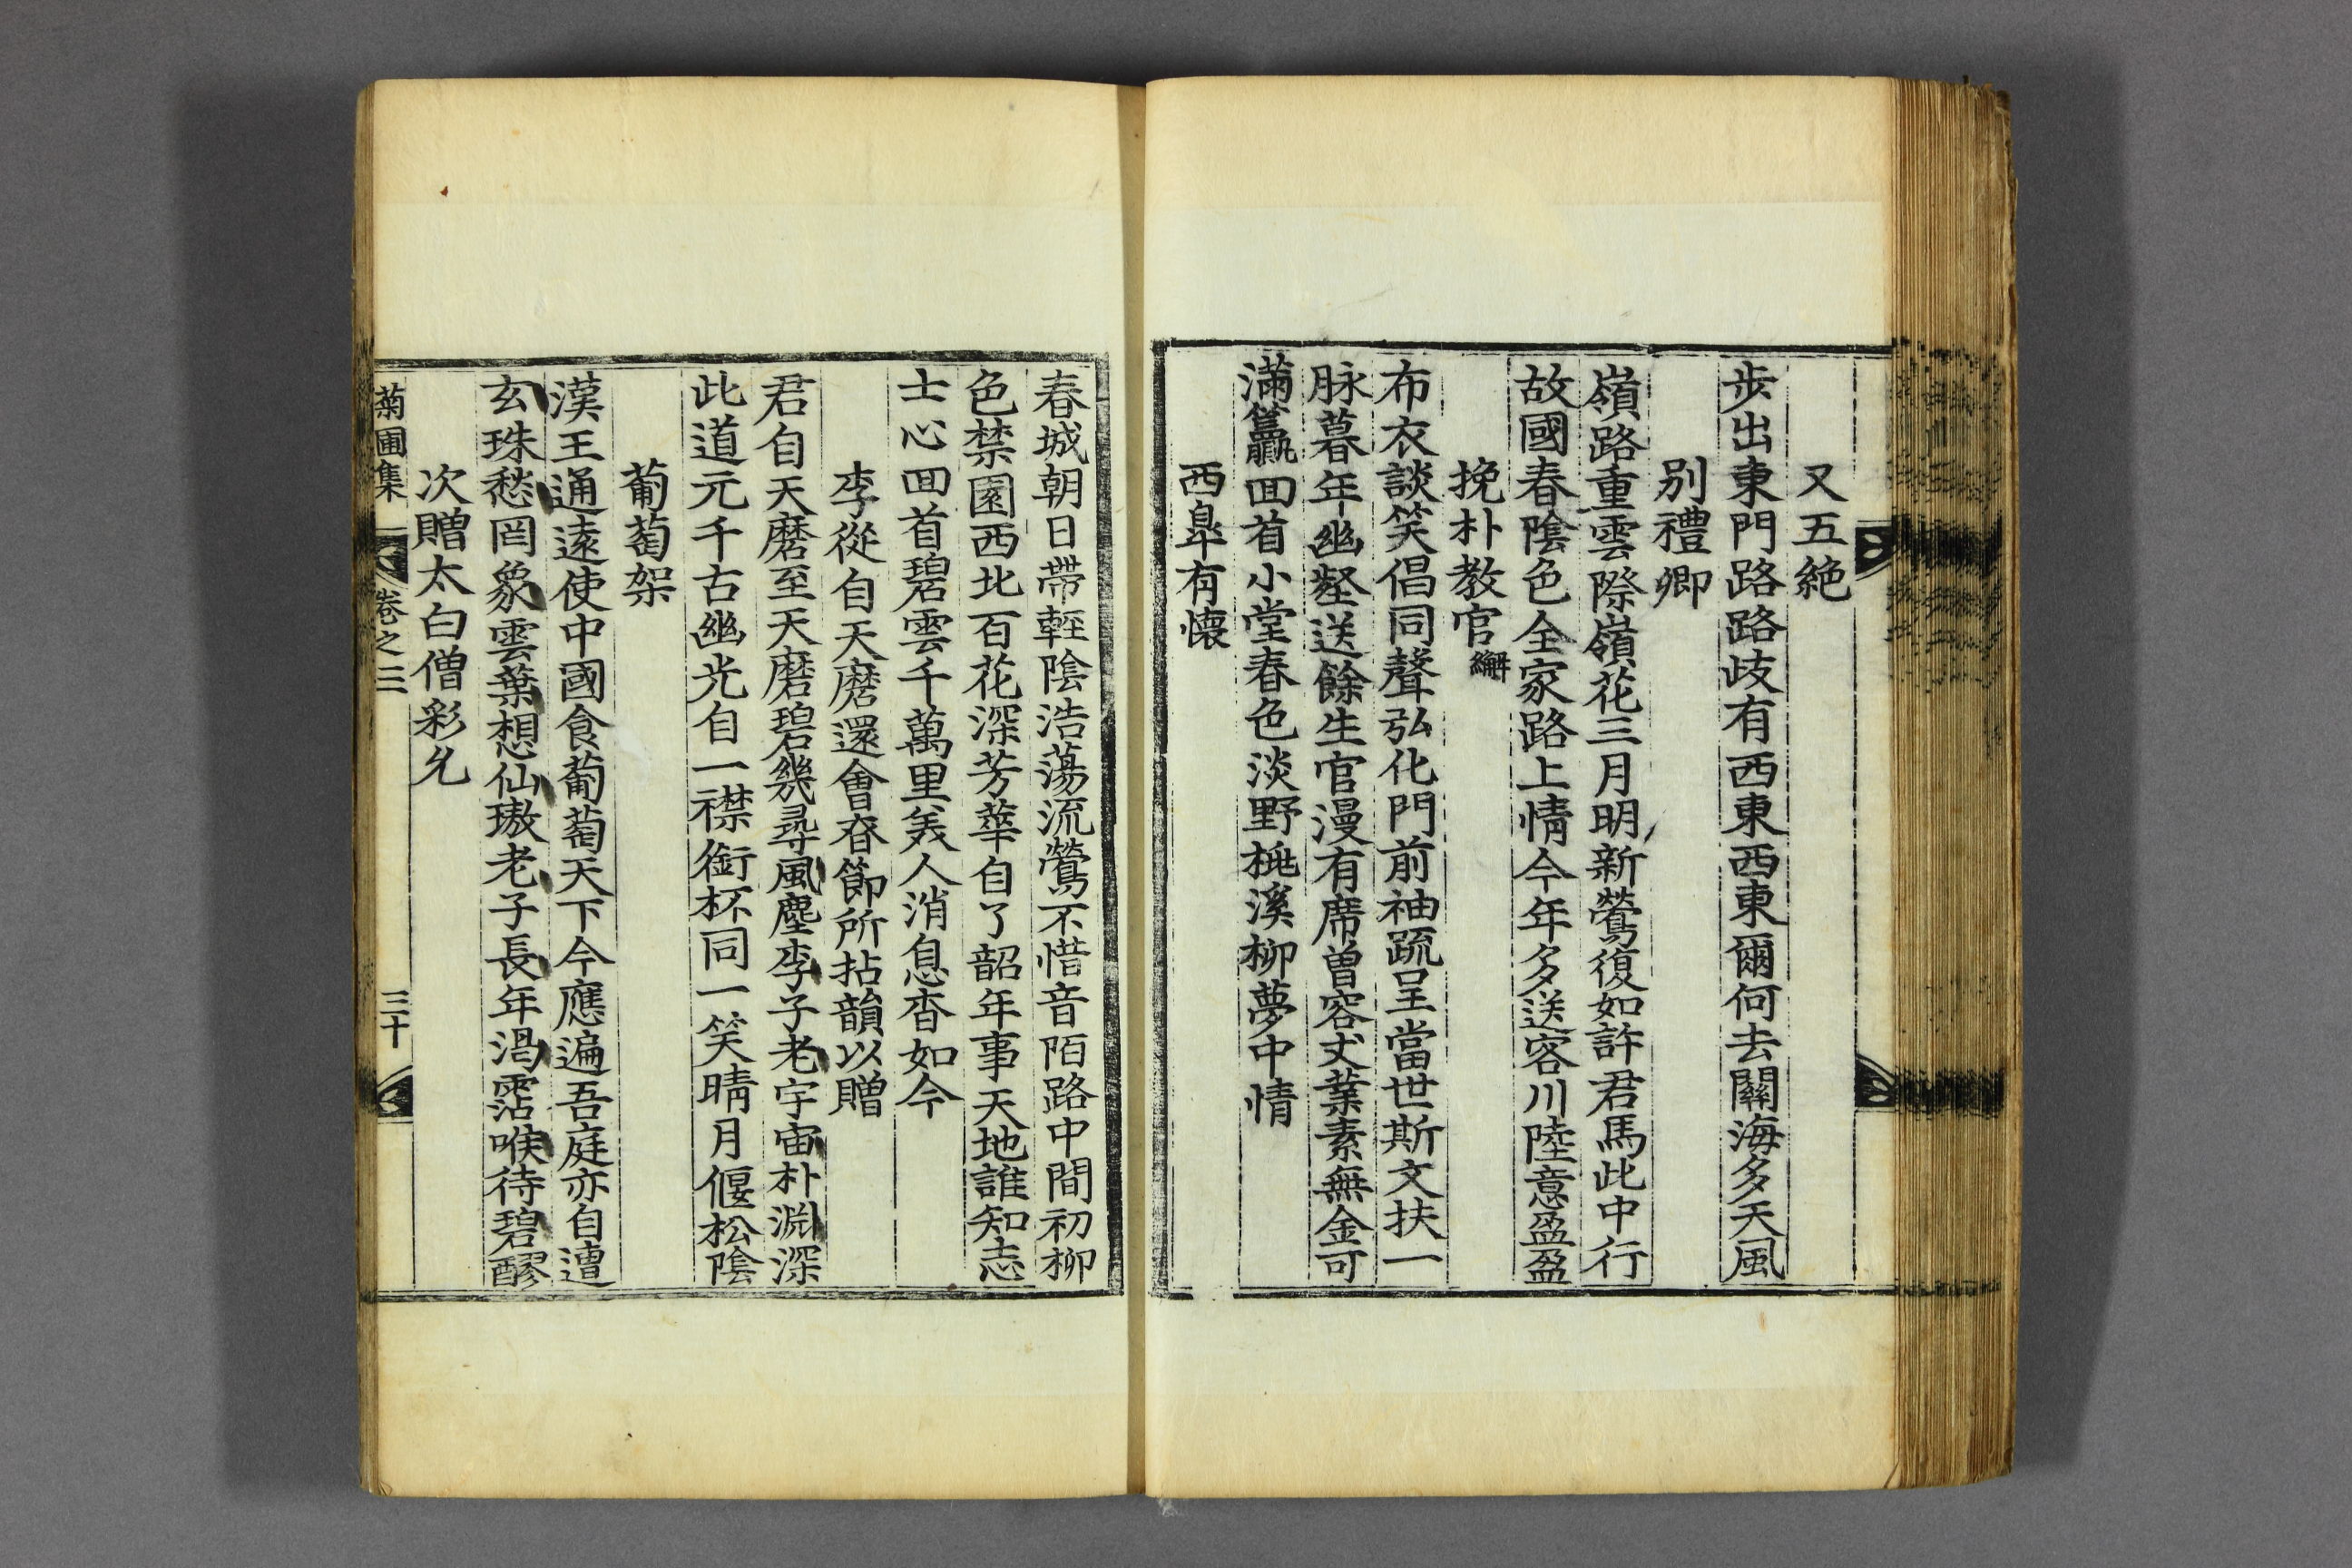 又五絶
步出東門路路歧有西東西東爾何去關海多天風
别禮卿
嶺路重雲際嶺花三月明新鶯復如許君馬此中行
故國春陰色全家路上情今年多送客川陸意盈盈
挽朴教官
布衣談笑倡同聲弘化門前袖疏呈當世斯文扶一
脉暮年幽壑送餘生官漫有席曽容丈業素無金可
滿籯回首小堂春色淡野桃溪柳夢中情
西臯有懷
春城朝日帶輕陰浩蕩流鶯不惜音陌路中間初柳
色禁園西北百花深芳華自了韶年事天地誰知志
士心回首碧雲千萬里美人消息杳如今
李從自天磨還會昚節所拈韻以贈
君自天磨至天磨碧幾尋風塵李子老宇宙朴淵深
此道元千古幽光自一襟銜杯同一笑晴月偃松陰
葡萄架
漢王通遠使中國食葡萄天下今應遍吾庭亦自遭
玄珠愁罔象雲葉想仙璈老子長年渴霑喉待碧醪
次贈太白僧彩允
菊圃集 卷之三 三十